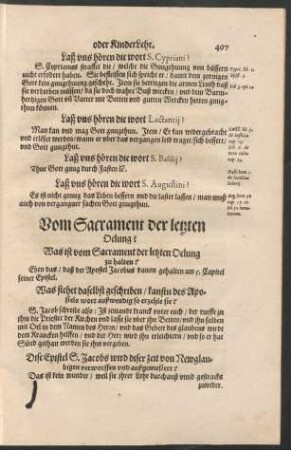 oder KinderLehr. 407
Laß vns hören die wort S. Cypriani?
S. Cyprianus straffet die / welche die Gnugthuung von büssern
nicht erfodert haben. Sie befleissen sich spricht er / damit dem zornigen
Gott kein gnugthuung geschehe. Jtem sie betriegen die armen Leuth daß
sie verderben müssen / da sie doch wahre Buß wircken / vnd dem Barm-
hertzigen Gott vnd Vatter mit Betten vnd guten Wercken hetten gnug-
thun können.
Laß vns hören die wort Lactantij?
Man kan vnd mag Gott gnugthun. Jtem / Er kan widergebracht
vnd erlöset werden / wann er vber das vergangen leid traget / sich bessert /
vnd Gott gnugthut.
Laß vns hören die wort S. Basilij?
Thue Gott gnug durch Fasten ꝛc.
Laß vns hören die wort S. Augustini?
Es ist nicht genug das Leben bessern vnd die laster lassen / man muß
auch von vergangnen sachen Gott gnugthun.
Vom Sacrament der letzten
Oelung?
Was ist vom Sacrament der letzten Oelung
zu halten?
Eben das / daß der Apostel Jacobus dauon gehalten am 5. Capitel
seiner Epistel.
Was stehet daselbst geschrieben / kanstu des Apo-
stels wort außwendig so erzehle sie?
S. Jacob schreibt also: Jst jemandt kranck vnter euch / der rueffe zu
jhm die Priester der Kirchen vnd lasse sie vber jhn Betten / vnd jhn salben
mit Oel in dem Namen des Herrn / vnd das Gebet des glaubens wird
dem Krancken helffen / vnd der Herr wird jhn erleichtern / vnd so er hat
Sünd gethan werden sie jhm vergeben.
Dise Epistel S. Jacobs wird diser zeit von Newglau-
bigen verworffen vnd außgemustert?
Das ist kein wunder / weil sie jhrer Lehr durchauß vnnd gestracks
zuwider.